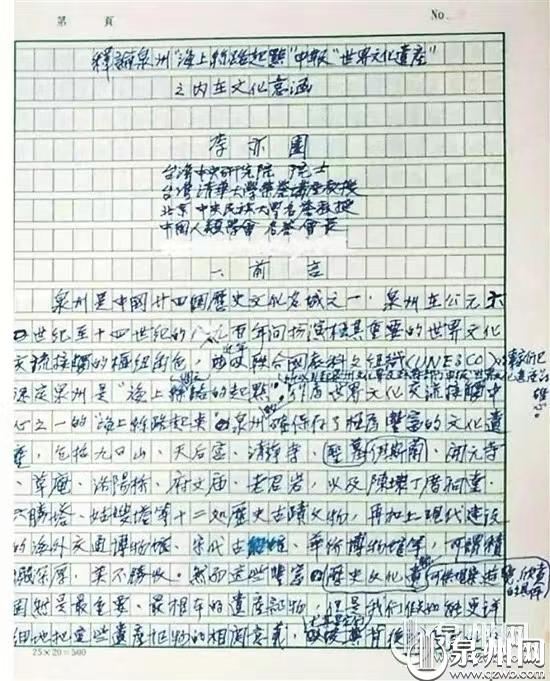 第 頁 No.
釋論泉州"海上絲路起點"申報"世界文化遺產"
之內在文化意涵
李亦園
台灣中央研究院 院士
台灣清華大學榮譽講座教授
北京中央民族大學名譽教授
中國人類學會名譽會長
一、前言
泉州是中國廿四個歷史文化名城之一，泉州在公元
世紀至十四世紀的八、九百年間扮演極其重要的世界文化
交流接觸的樞紐角色，聯合國教科文組織(UNESCO)
泉州是"海上絲路的起點"，世界文化交流接觸中
心之一的"海上絲路起點"泉州確保存了極為豐富的文化遺
產，包括九日山、天后宮、清淨寺、聖墓、開元寺
、草庵、洛陽橋、府文廟、老君岩，以及陳埭丁屋祠堂、
六勝塔、姑嫂塔等十二處歷史古蹟文物，再加上現代建設
的海外交通博物館、宋代古船館、華僑博物館等，可謂積
深厚，美不勝收。然而這些豐富的歷史文化遺產
固然是最重要、最根本的遺產部物，但是我們假如能更詳
細地把這些遺產部物的相關意義，
25×20=500
泉州网
www.qzwb.com